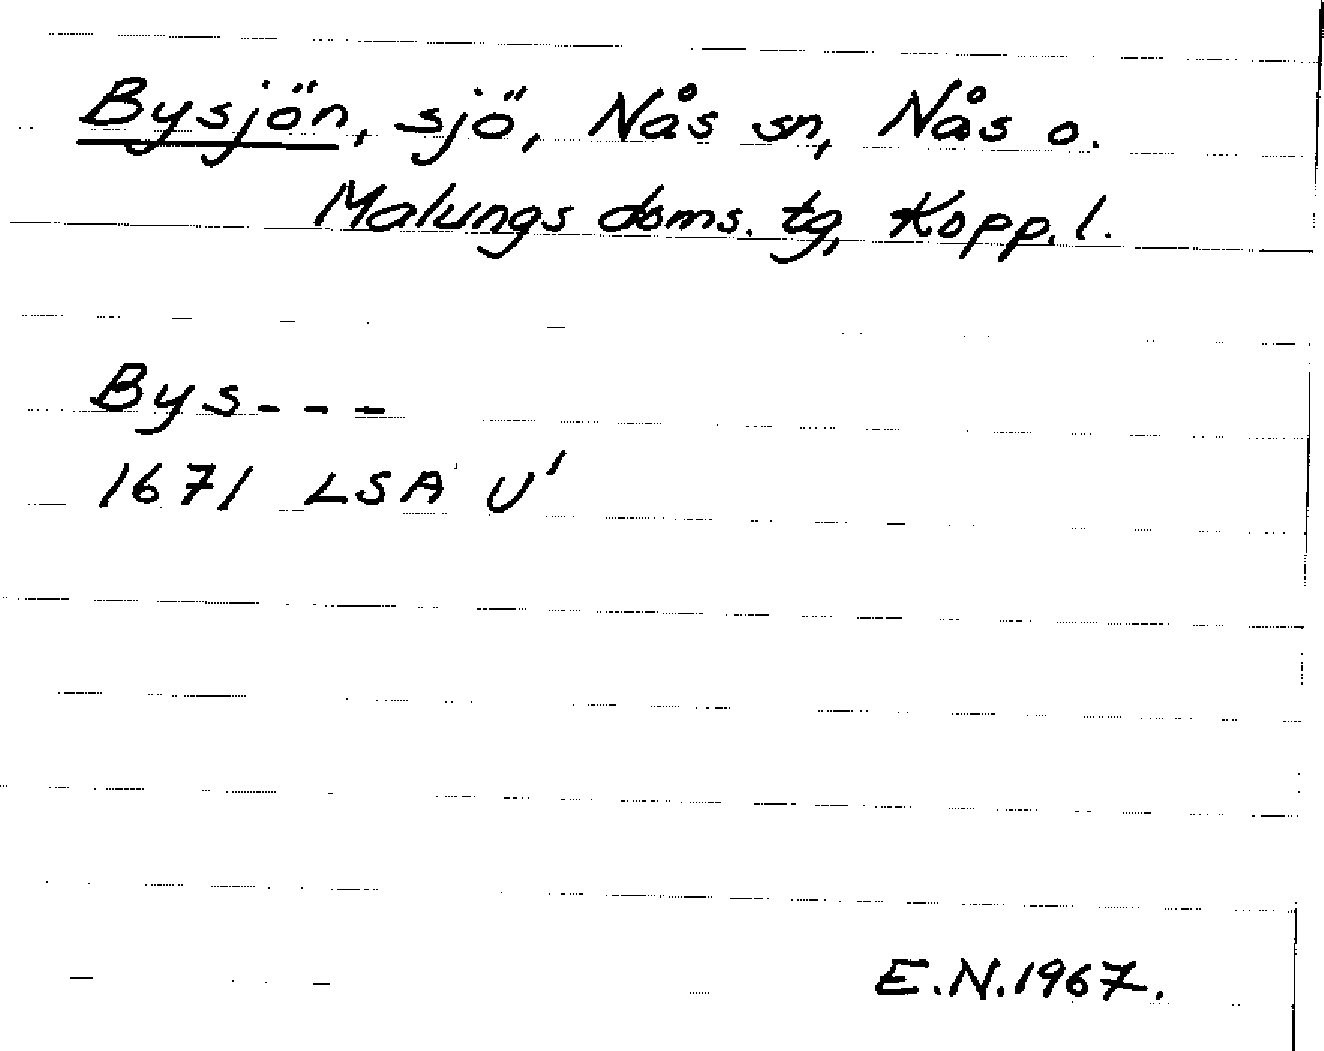 Bysjön, sjö, Nås sn, Nås o.
Malungs doms. tg, Kopp. l.
Bys---
1671 LSA U'
E.N.1967.